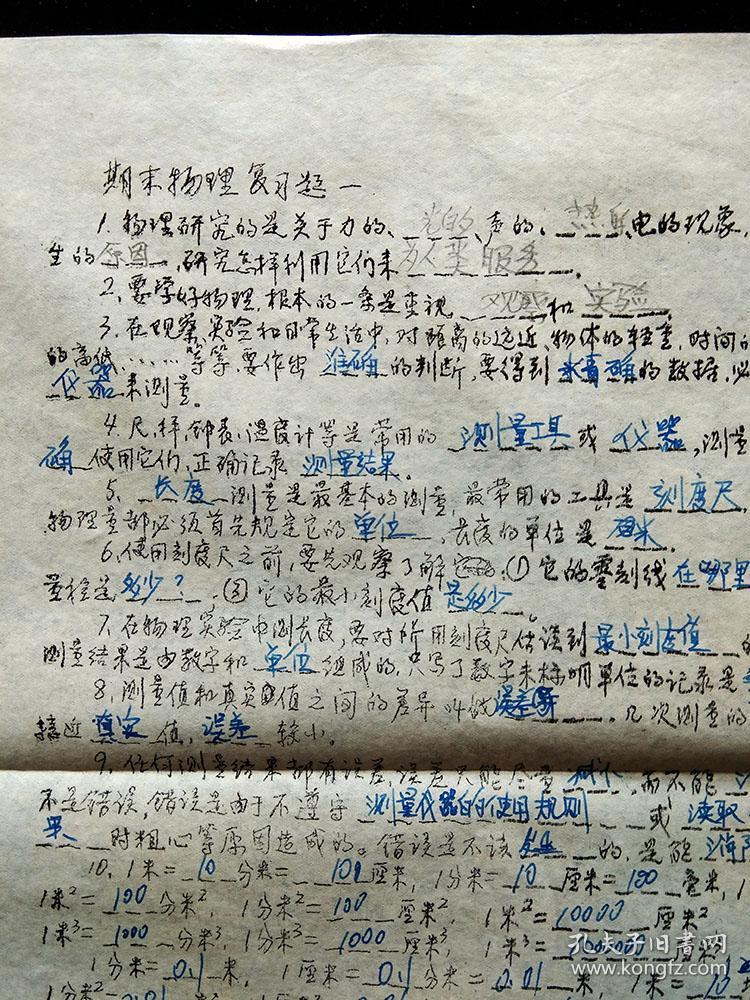 期末物理复习题一
1. 物理研究的是关于力的、光的、声的、热的、电的现象
生的原因,研究怎样利用它们来为人类服务。
2. 要学好物理,根本的一条是重视 观察 和 实验
3. 在观察、实验和日常生活中,对距离的远近,物体的轻重,时间的
的高低……等等,要作出 准确 的判断,要得到 准确 的数据,必
仪器 来测量。
4. 尺、秤、钟表、温度计等是常用的 测量工具 或 仪器,测量
确 使用它们,正确记录 测量结果。
5. 长度 测量是最基本的测量,最常用的工具是 刻度尺
物理量都必须首先规定它的 单位,长度的单位是 米。
6. 使用刻度尺之前,要先观察了解它 ① 它的零刻线 在哪里
量程是 多少?③ 它的最小刻度值 是多少。
7. 在物理实验中测长度,要对所用刻度尺估读到 最小刻度值 的
测量结果是由数字和 单位 组成的,只写了数字未标明单位的记录是
8. 测量值和真实值之间的差异叫做 误差。几次测量的
接近 真实 值,误差 较小。
9. 任何测量结果都有误差,误差只能尽量 减小,而不能
不是错误,错误是由于不遵守 测量仪器的使用规则 或 读取
果 时粗心等原因造成的。错误是不该 的,是能
10. 1米=10分米=100厘米,1分米=10厘米=100毫米,1
1米²=100分米²,1分米²=100厘米²,1米²=10000厘米²
1米³=1000分米³,1分米³=1000厘米³,1米³=1000000厘米³
1分米=0.1米,1厘米=0.1分米=0.01米,1米=10
孔夫子旧书网
www.kongfz.com